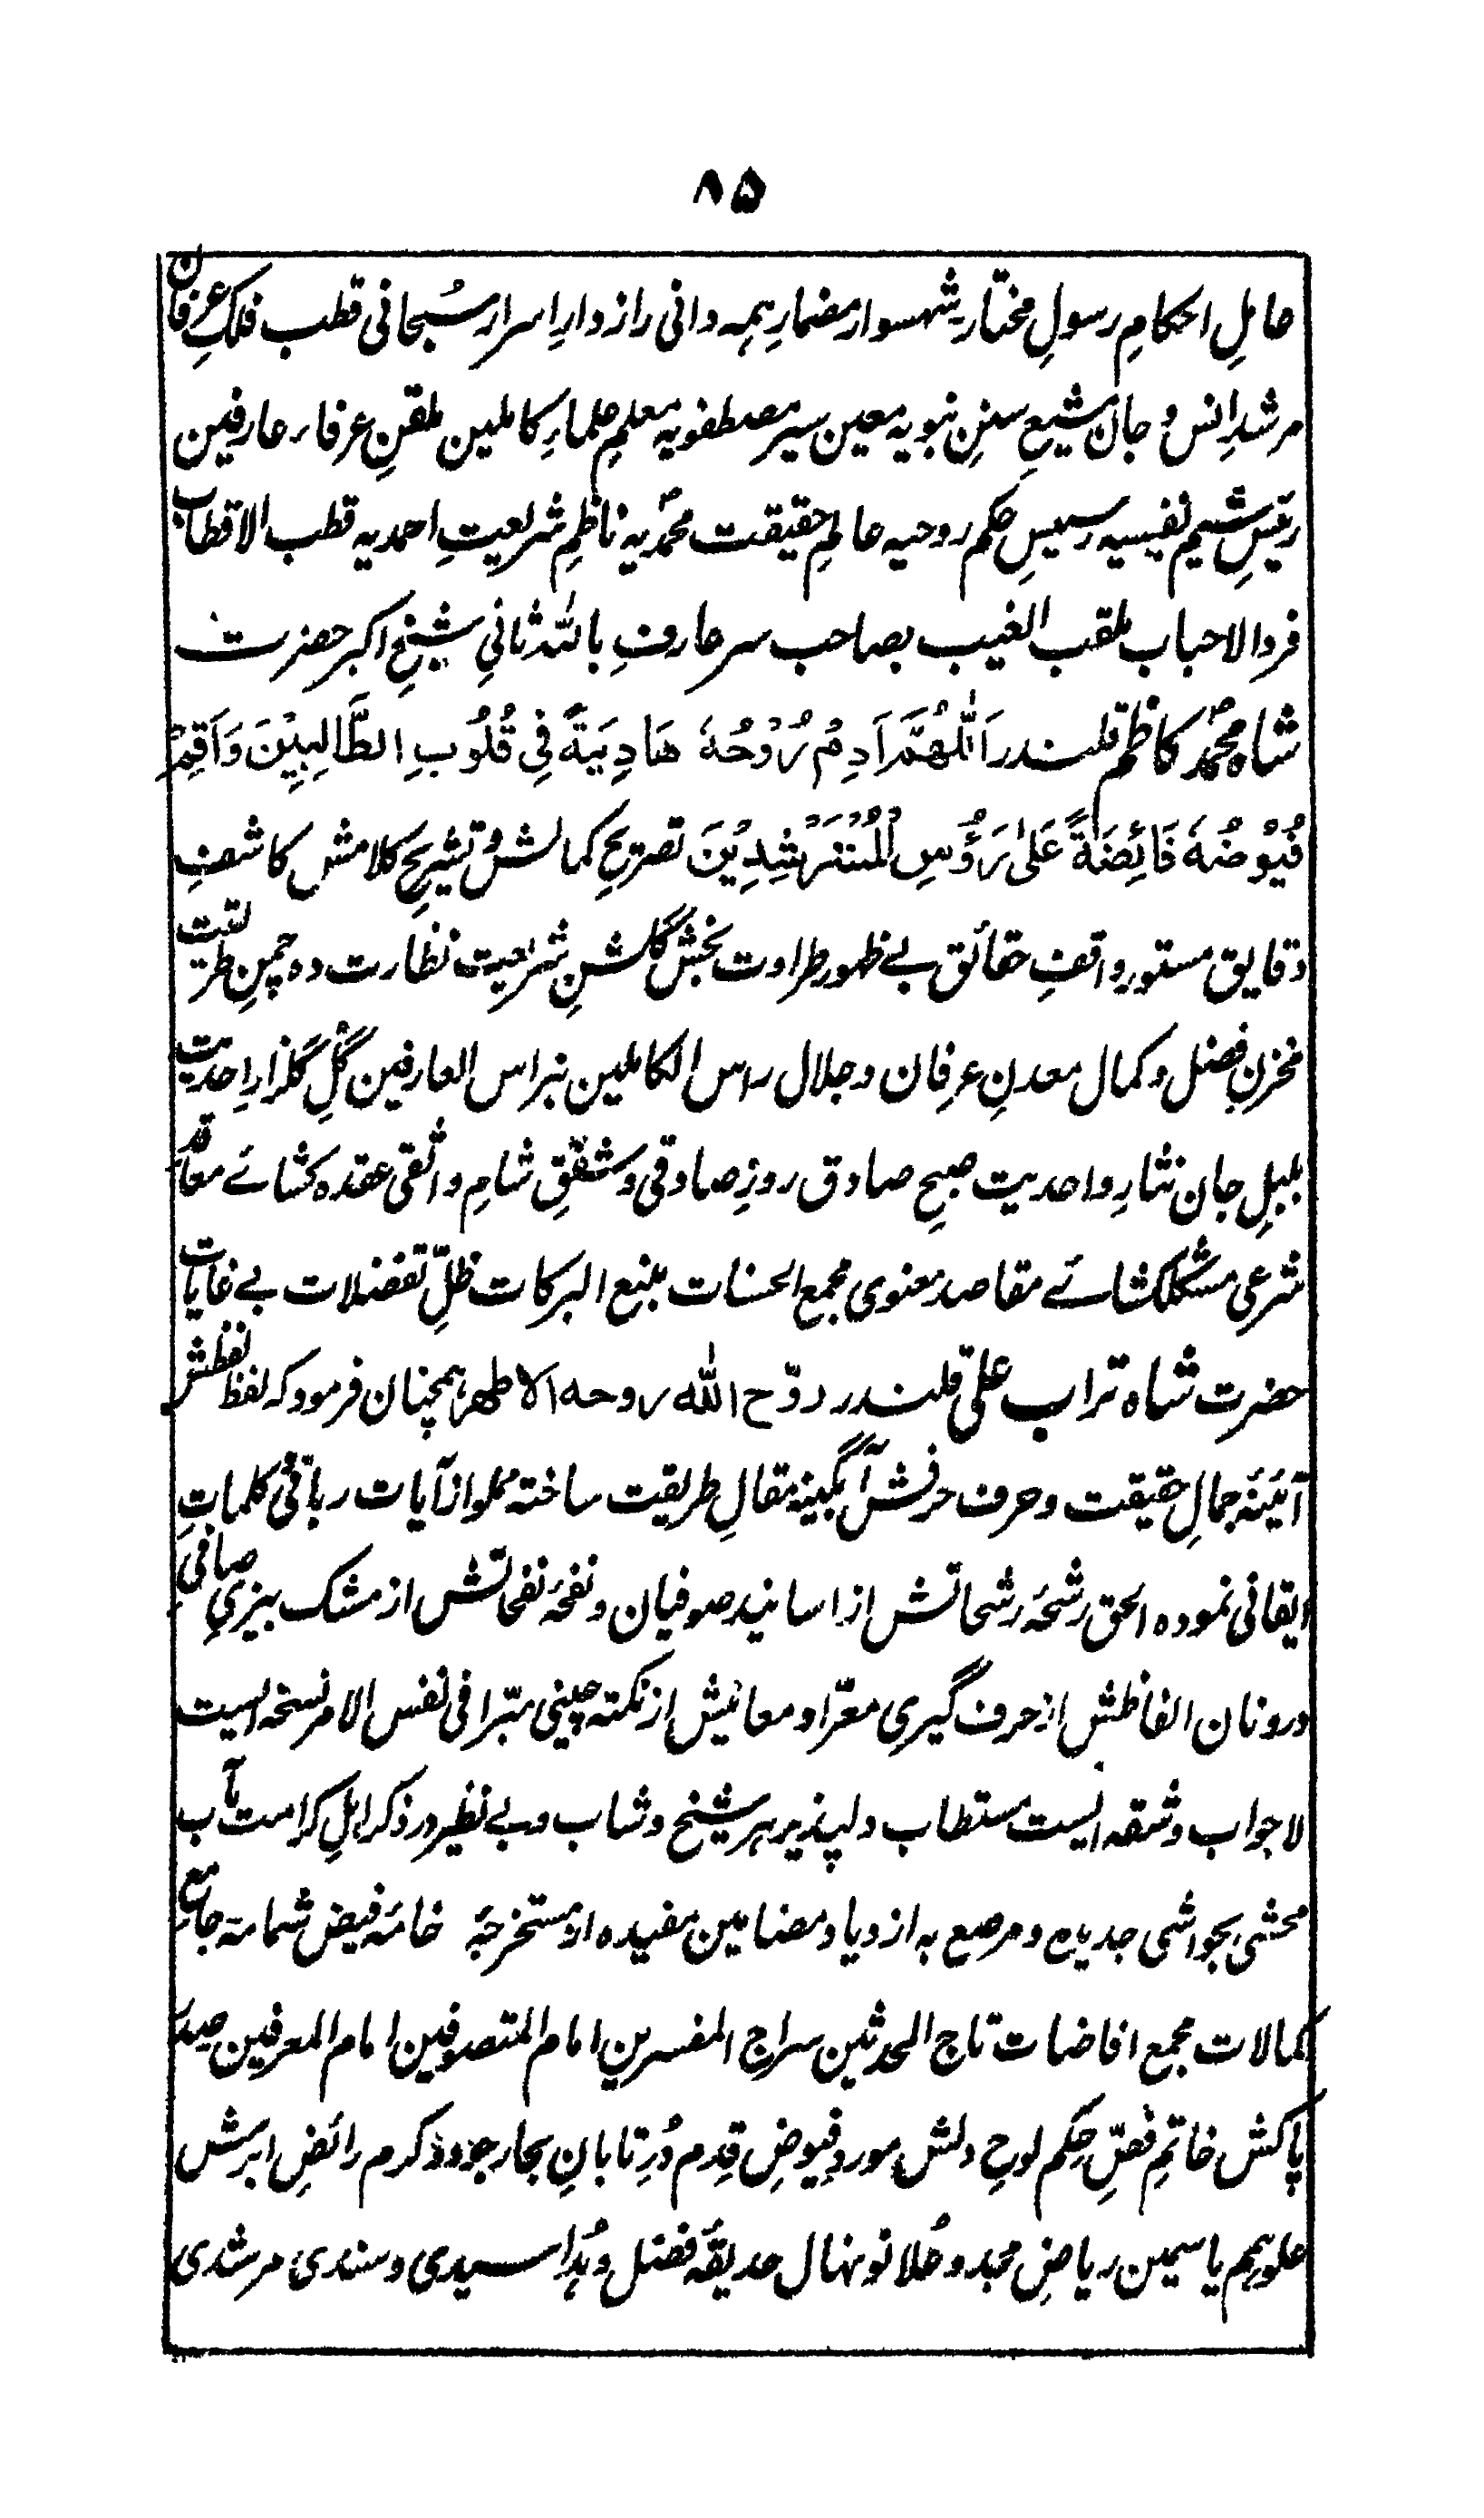 ۸۵
حاملِ احکامِ رسولِ مختار شہسوار مضمارِ ہمہ دانی راز دارِ اسرار سُبحانی قطب فلکِ عرفان
مرشدِ انس و جان مشیعِ سننِ نبویہ معین سیر مصطفویہ معلمِ علماءِ کاملین ملقنِ عرفاء عارفین
رئیسِ شیم نفیسیہ رسیسِ حکم روحیہ عالمِ حقیقت محمدؐیہ ناظمِ شریعتِ احمدیہ قطب الاقطاب
فرد الاحباب ملقب الغیب بصاحب سر عارفِ باللہ ثانیِ شیخِ اکبر حضرت
شاہ محمدؐ کاظم قلندر اَللّٰهُمَّ اَدِمْ رُوْحُهٗ هَادِيَةً فِي قُلُوْبِ الطَّالِبِيْنَ وَاَقِمْ
فُيُوْضُهٗ فَائِضَةً عَلٰى رَؤُسِ الْمُسْتَرْشِدِيْنَ تصریحِ کمالش و تشریحِ کلامش کاشفِ
دقایق مستور واقفِ حقائق بے ظہور طراوت بخش گلشنِ شریعت نظارت دہ چمنِ طریقت
مخزنِ فضل و کمال معدنِ عرفان و جلال راس الکاملین نبراس العارفین گلِ گلزارِ احدیت
بلبلِ جان نثارِ واحدیت صبحِ صادق روزِ صادقی و شفقِ شامِ واثقی عقدہ کشائے معاقد
شرعی مشکلکشائے مقاصد معنوی مجمع الحسنات منبع البرکات ظلِّ تفضلات بے غایات
حضرت شاہ تراب علی قلندر روّح اللّٰہ روحہ الاطہر ہمچنان فرمود کہ لفظ لفظش
آئینۂ جمالِ حقیقت و حرف حرفش آبگینۂ مقالِ طریقت ساختہ مملو از آیات ربانی و کلماتِ
ایقانی نمودہ الحق رشحۂ رشحاتش از اسانید صوفیان و نفحۂ نفحاتش از مشک بیزیِ صافی
درونان الفاظش از حرف گیریِ معرّا و معانیش از نکتہ چینی مبّرا فی نفس الامر نسخہ ایست
لاجواب وثیقہ ایست مستطاب دلپذیر ہر شیخ و شاب و بے نظیر در ذکر اہلِ کرامت مآب
محشی بحواشی جدیدہ و مرصع بہ ازدیاد مضامین مفیدہ او مستخرجۂ خامۂ فیض شمامۂ جامع
کمالات مجمع افاضات تاج المحدثین سراج المفسرین امام المتصوفین امام المعرفین
پاکش خاتمِ فصِّ حِکم لوحِ دلش موردِ فیوضِ قِدم دُرِ تابانِ بحار جود و کرم رائضِ ابرش
علوہمم یاسمین ریاضِ مجد و عُلا نونہال حدیقۂ فضل و ہُدا سیدی و سندی مرشدی